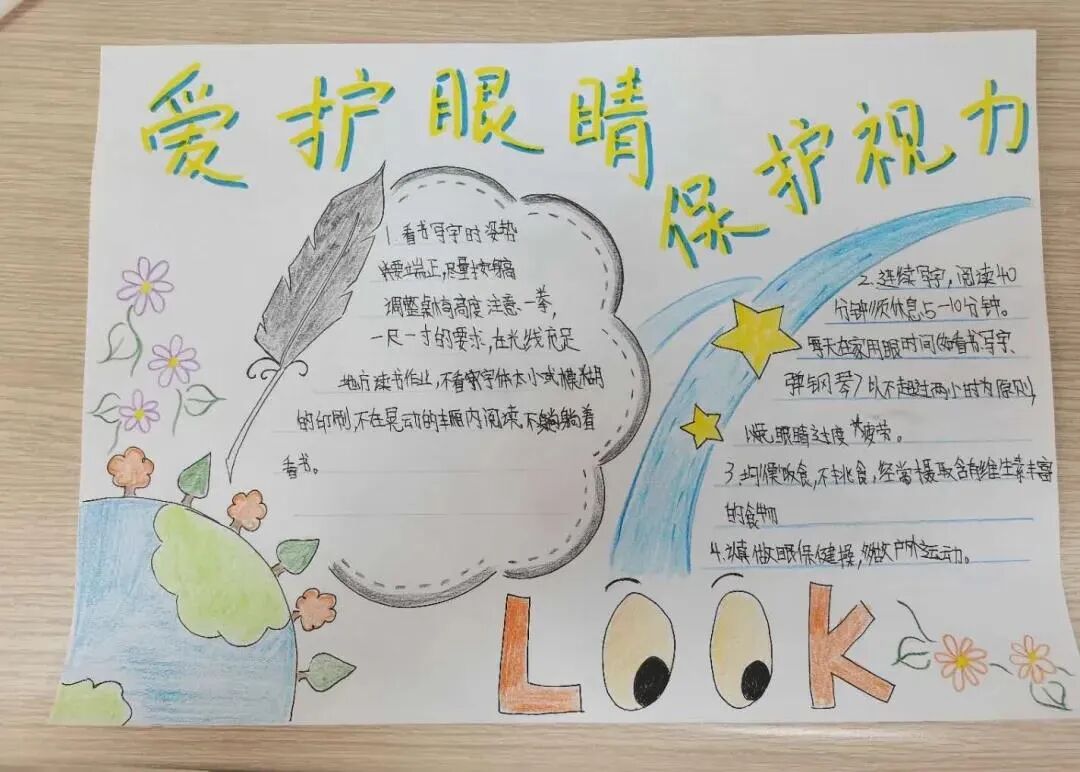 爱护眼睛
保护视力
1.看书写字时姿势
要端正,尽量按照
调整桌椅高度 注意一拳,
一尺一寸的要求,在光线充足
地方读书作业,不看字体太小或模糊
的印刷,不在晃动的车厢内阅读,不躺着
看书。
2.连续写字,阅读40
分钟须休息5-10分钟。
每天在家用眼时间(如看书写字、
弹钢琴)以不超过两小时为原则,
避免眼睛过度疲劳。
3.均衡饮食,不挑食,经常摄取含维生素丰富
的食物
4.认真做眼保健操,多做户外运动。
LOOK